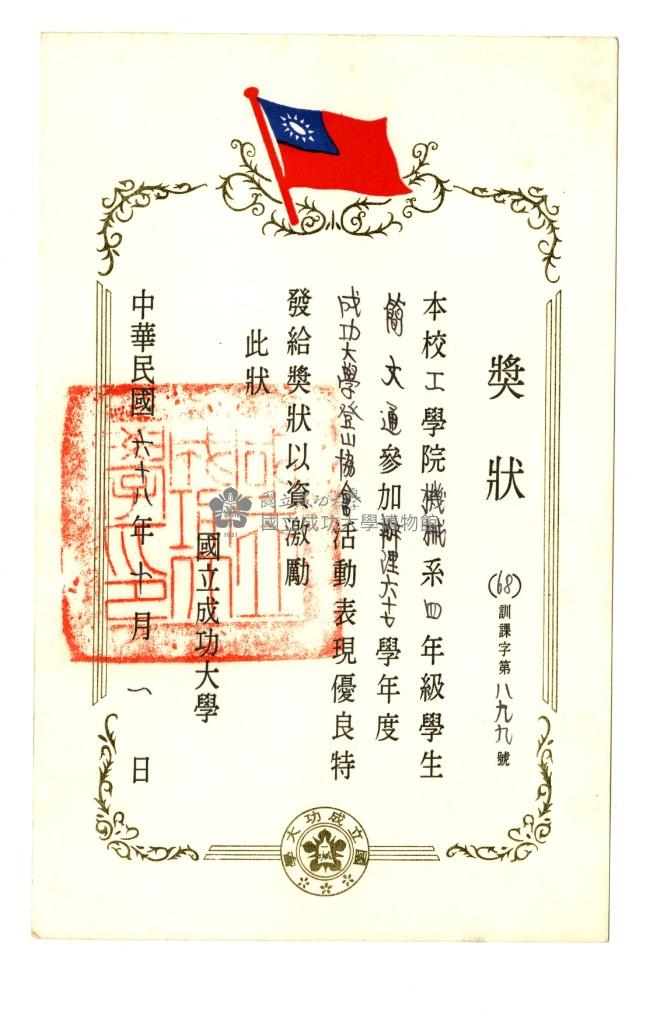 獎狀
(68)訓課字第八九九號
本校工學院機械系四年級學生
簡文通參加辦理六十七學年度
成功大學登山協會活動表現優良特
發給獎狀以資激勵
此狀
國立成功大學
中華民國六十八年十月一日
國立成功大學
國立成功大學博物館
1931
國立成功大學